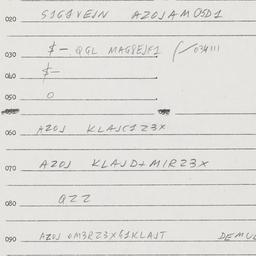 020 S1G1VEJN AZOJAMOSD1
030 $- QGL MAG8EJF1 034111
040 $-
050 0
060 AZOJ KLAJC1Z3X
070 AZOJ KLAJD+M1RZ3X
080 QZZ
090 AZOJ OM3RZ3X&1KLAJT DEMUL